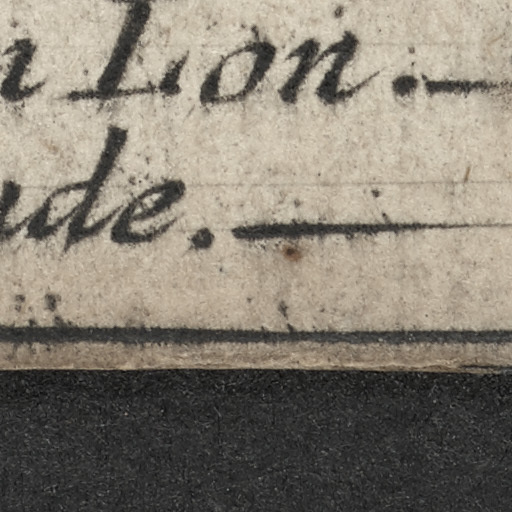 n Lon.—
ude.—